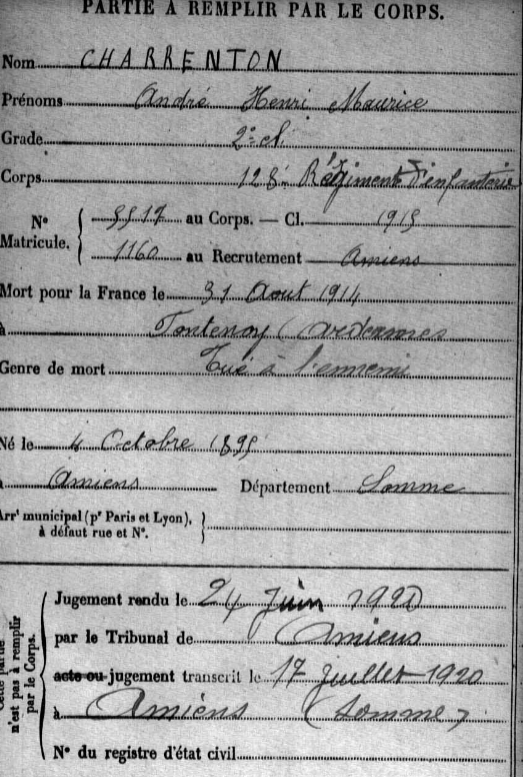 PARTIE À REMPLIR PAR LE CORPS.
Nom CHARRENTON
Prénoms André Henri Maurice
Grade 2e cl.
Corps 128e Régiment d'infanterie
No Matricule. { 5517 au Corps. — Cl. 1915
1160 au Recrutement Amiens
Mort pour la France le 31 Aout 1914
à Fontenoy (Ardennes
Genre de mort Tué à l'ennemi
Né le 4 Octobre 1895
à Amiens Département Somme
Arrt municipal (pr Paris et Lyon), }
à défaut rue et No.
Cette partie
n'est pas à remplir
par le Corps.
Jugement rendu le 24 Juin 1920
par le Tribunal de Amiens
acte ou jugement transcrit le 17 juillet 1920
à Amiens (Somme)
No du registre d'état civil